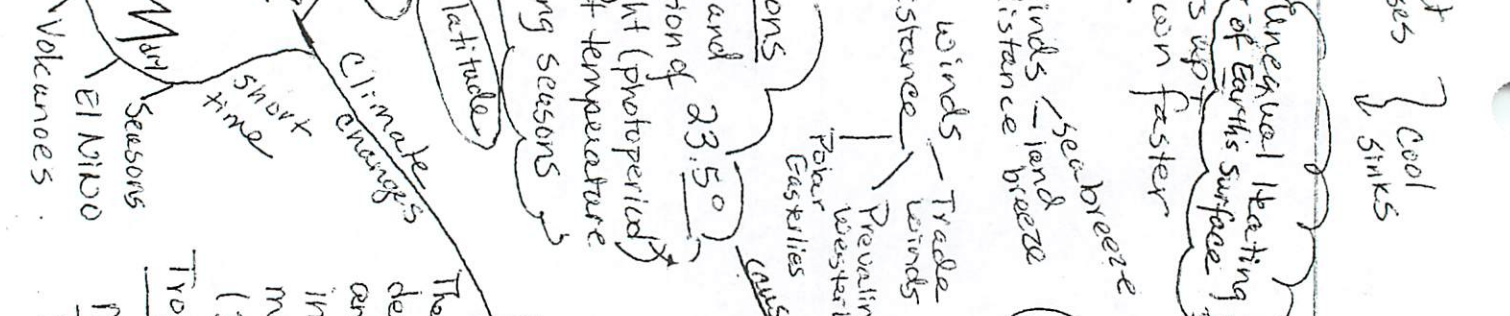 cool
ses
sinks
Unequal Heating
of Earth's Surface
s up +
wn faster
sea breeze
inds – land breeze
istance
winds – Trade winds
stance
Prevailin
Westerl
Polar
Easterlies
ons
and
tion of 23.5°
ht (photoperiod)
t temperature
ng seasons
caus
latitude
Climate
changes
short
time
Seasons
El Nino
Volcanoes.
The
de
an
in
m
Tro